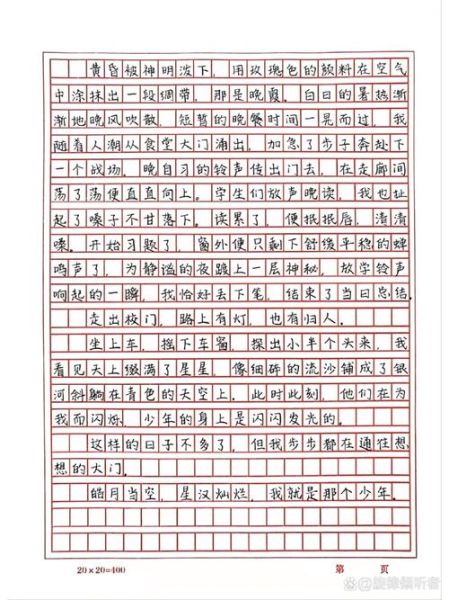 黄昏被神明泼下，用玫瑰色的颜料在空气
中涂抹出一段绸带，那是晚霞。白日的暑热渐
渐地晚风吹散，短暂的晚餐时间一晃而过，我
随着人潮从食堂大门涌出，加急了步子奔赴下
一个战场。晚自习的铃声传出门去，在走廊间
荡了荡便直直向上。学生们放声晚读，我也扯
起了嗓子不甘落下。读累了，便抿抿唇，清清
嗓。开始习题了，窗外便只剩下舒缓平稳的蝉
鸣声了，为静谧的夜踱上一层神秘，放学铃声
响起的一瞬，我恰好丢下笔，结束了当日总结。
走出校门，路上有灯，也有归人。
坐上车，摇下车窗，探出小半个头来，我
看见天上缀满了星星，像细碎的流沙铺成了银
河斜躺在青色的天空上。此时此刻，他们在为
我而闪烁，少年的身上是闪闪发光的。
这样的日子不多了，但我步步都在通往想
想的大门。
皓月当空，星汉灿烂，我就是那个少年。
20×20=400
第 页